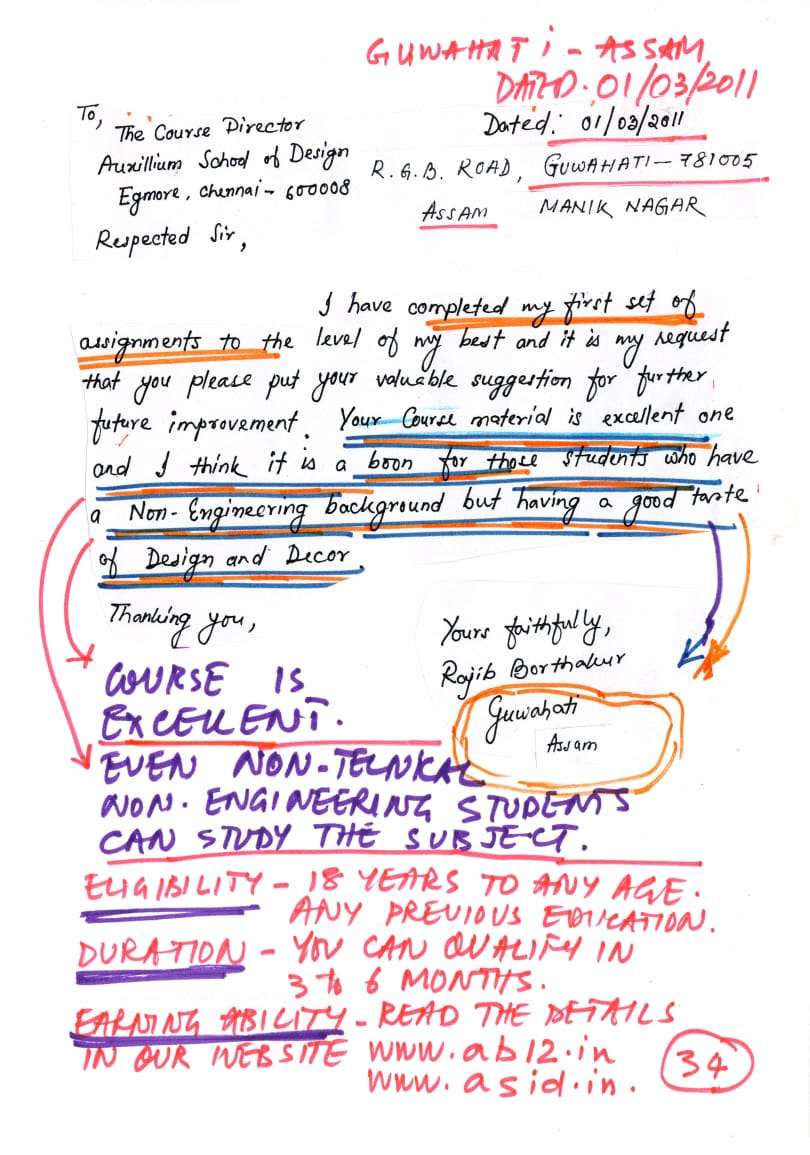 GUWAHATI - ASSAM
DATED. 01/03/2011
To,
The Course Director
Auxillium School of Design
Egmore, Chennai - 600008
Dated: 01/03/2011
R.G.B. ROAD, GUWAHATI - 781005
ASSAM MANIK NAGAR
Respected Sir,
I have completed my first set of
assignments to the level of my best and it is my request
that you please put your valuable suggestion for further
future improvement. Your Course material is excellent one
and I think it is a boon for those students who have
a Non-Engineering background but having a good taste
of Design and Decor.
Thanking you,
Yours faithfully,
Rajib Borthakur
Guwahati
Assam
COURSE IS
EXCELLENT.
EVEN NON-TECNICAL
NON. ENGINEERING STUDENTS
CAN STUDY THE SUBJECT.
ELIGIBILITY - 18 YEARS TO ANY AGE.
ANY PREVIOUS EDUCATION.
DURATION - YOU CAN QUALIFY IN
3 to 6 MONTHS.
EARNING ABILITY - READ THE DETAILS
IN OUR WEBSITE www.ab12.in
www.asid.in.
34